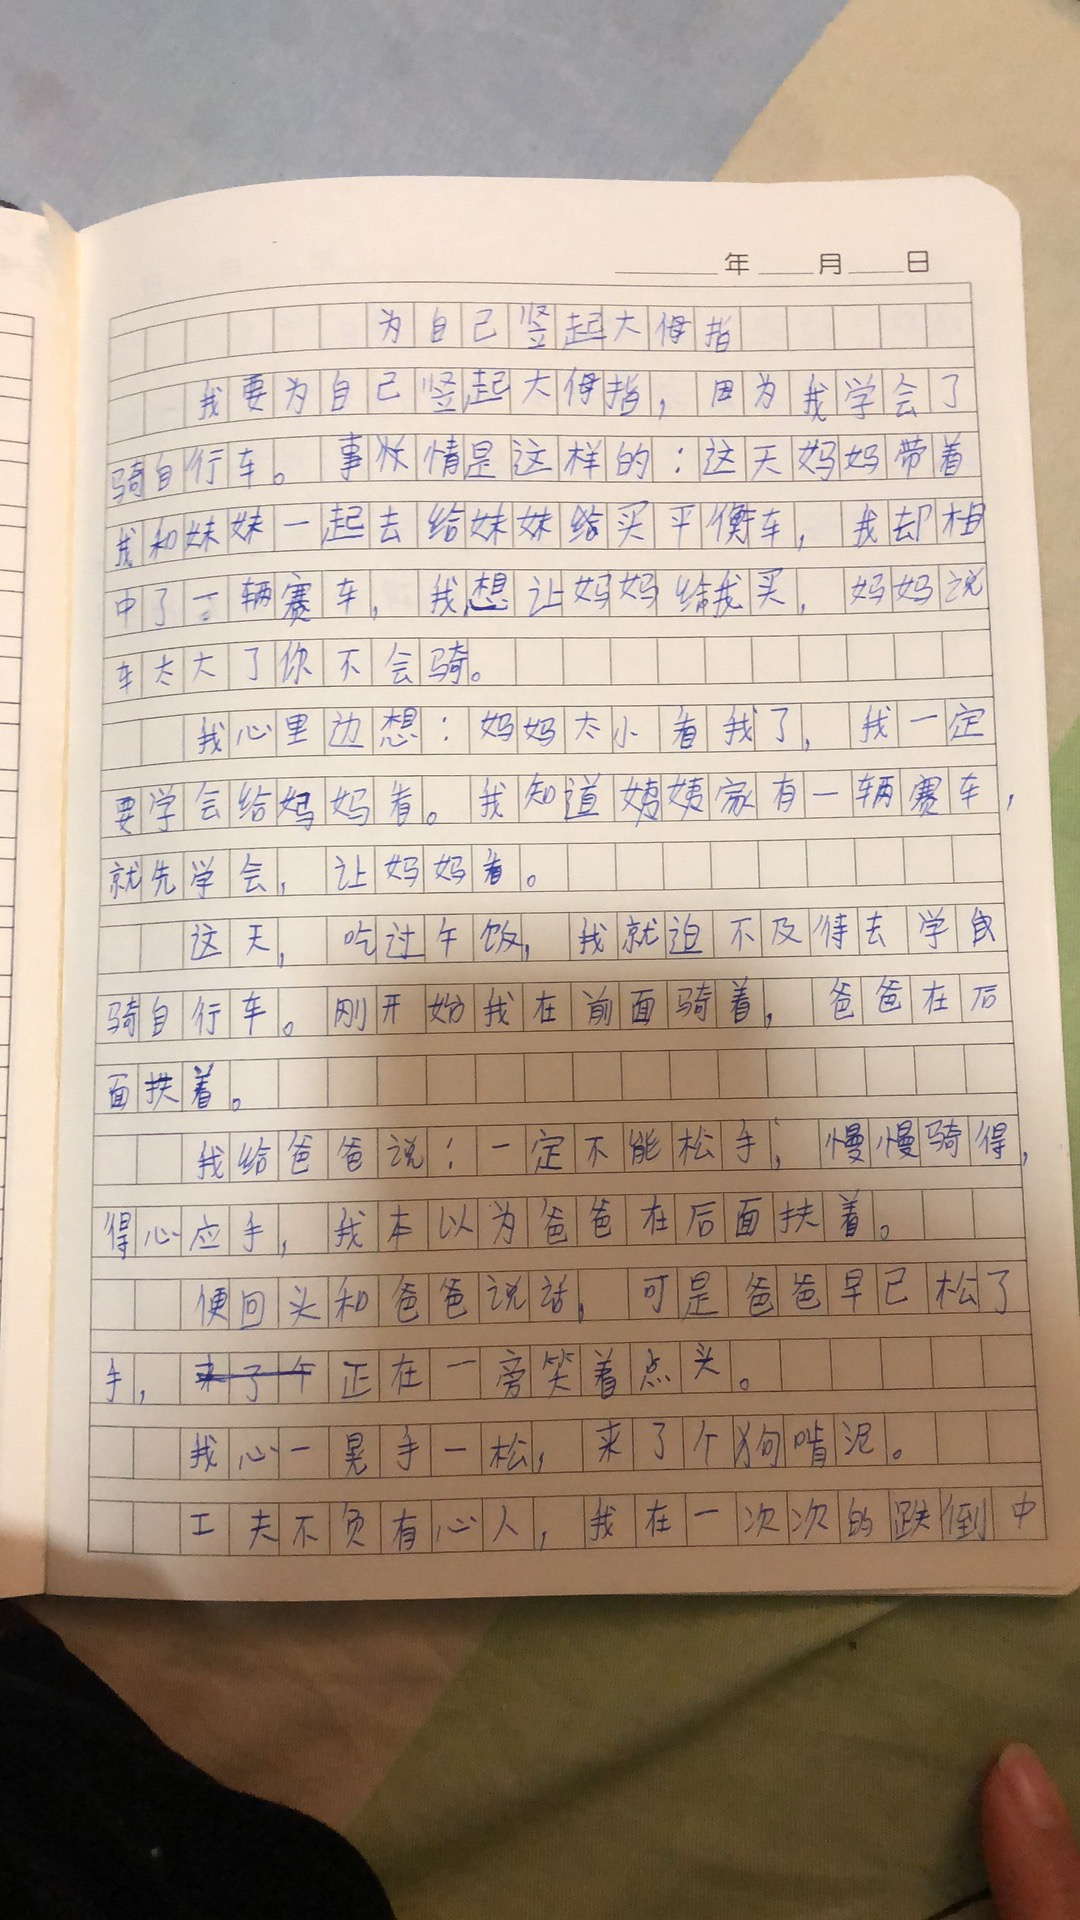 年 月 日
为自己竖起大母指
我要为自己竖起大母指，因为我学会了
骑自行车。事情是这样的：这天妈妈带着
我和妹妹一起去给妹妹给买平衡车，我却相
中了一辆赛车，我想让妈妈给我买，妈妈说
车太大了你不会骑。
我心里边想：妈妈太小看我了，我一定
要学会给妈妈看。我知道姨姨家有一辆赛车，
就先学会，让妈妈看。
这天，吃过午饭，我就迫不及待去学
骑自行车。刚开始我在前面骑着，爸爸在后
面扶着。
我给爸爸说：一定不能松手，慢慢骑得，
得心应手，我本以为爸爸在后面扶着。
便回头和爸爸说话，可是爸爸早已松了
手，来了个正在一旁笑着点头。
我心一晃手一松，来了个狗啃泥。
工夫不负有心人，我在一次次的跌倒中